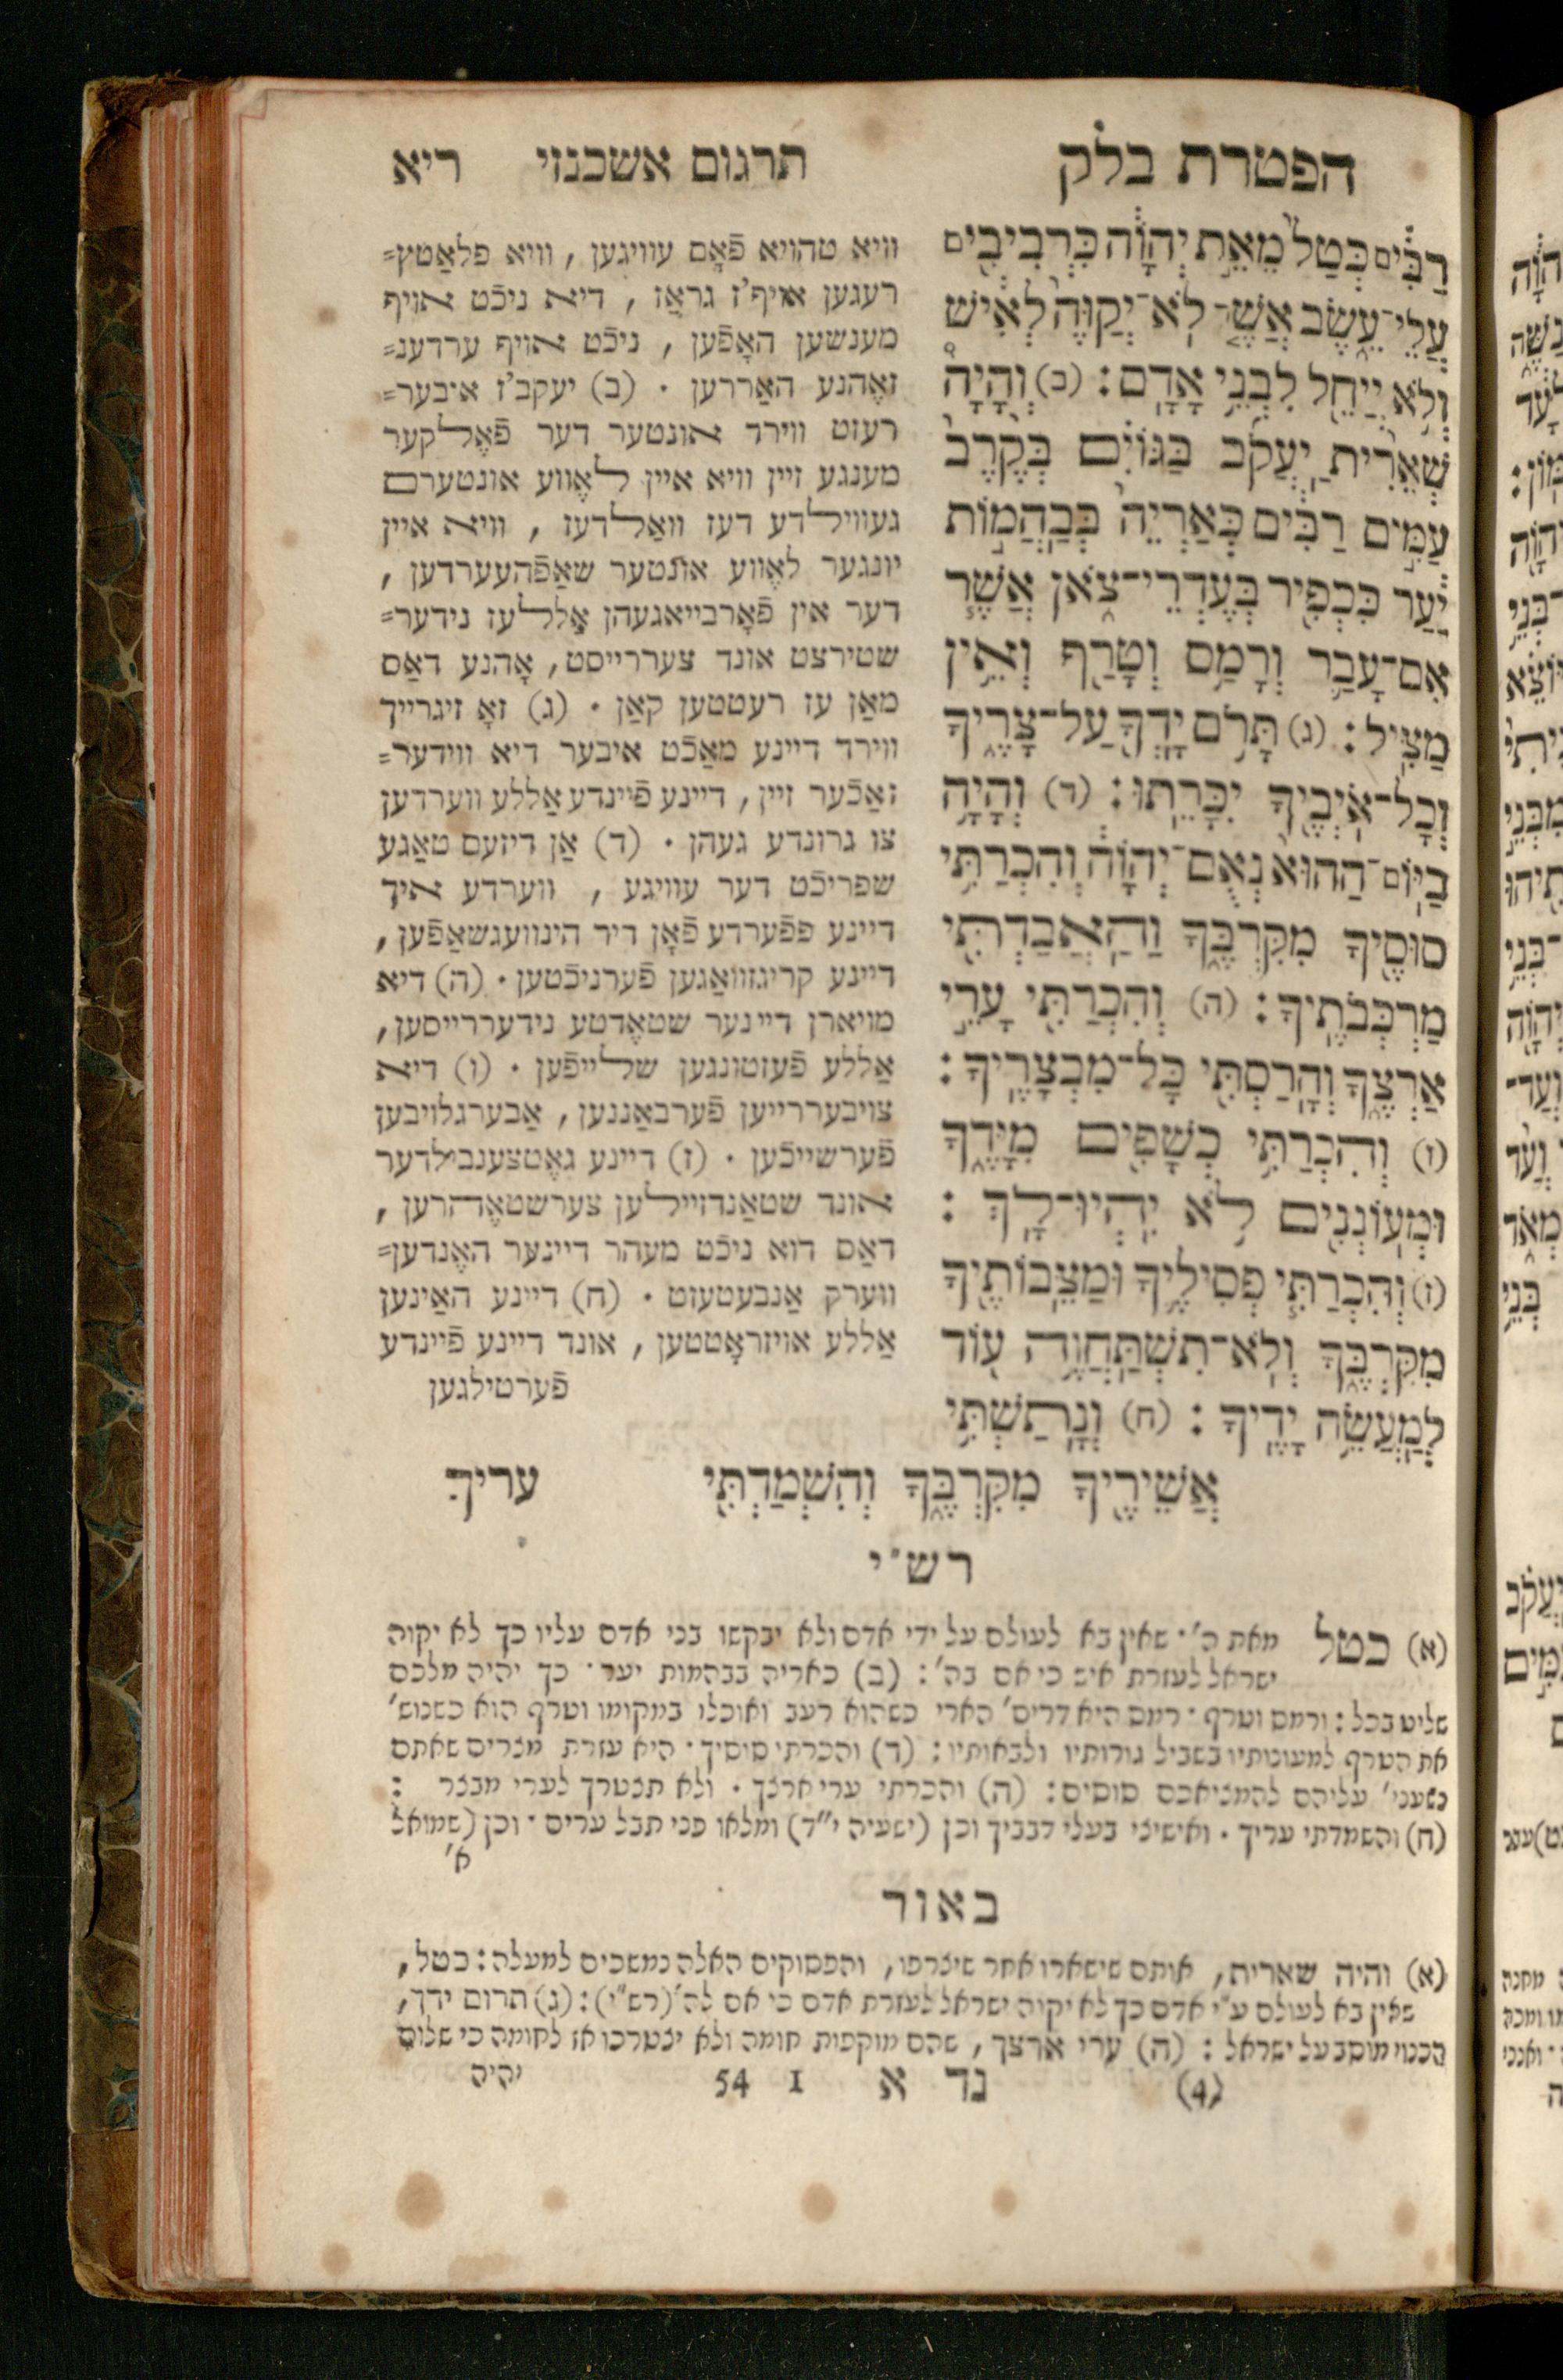 הפטרת בלק
תרגום אשכנזי ריא
רַבִּ֗ים כְּטַל֙ מֵאֵ֣ת יְהוָ֔ה כִּרְבִיבִ֖ים
עֲלֵי־עֵ֑שֶׂב אֲשֶׁ֤ר לֹֽא־יְקַוֶּה֙ לְאִ֔ישׁ
וְלֹ֥א יְיַחֵ֖ל לִבְנֵ֥י אָדָֽם׃ (ב) וְהָיָה֩
שְׁאֵרִ֨ית יַעֲקֹ֜ב בַּגּוֹיִ֗ם בְּקֶ֙רֶב֙
עַמִּ֣ים רַבִּ֔ים כְּאַרְיֵה֙ בְּבַהֲמ֣וֹת
יַ֔עַר כִּכְפִ֖יר בְּעֶדְרֵי־צֹ֑אן אֲשֶׁ֧ר
אִם־עָבַ֛ר וְרָמַ֥ס וְטָרַ֖ף וְאֵ֥ין
מַצִּֽיל׃ (ג) תָּרֹ֥ם יָדְךָ֖ עַל־צָרֶ֑יךָ
וְכָל־אֹיְבֶ֖יךָ יִכָּרֵֽתוּ׃ (ד) וְהָיָ֤ה
בַיּוֹם־הַהוּא֙ נְאֻם־יְהוָ֔ה וְהִכְרַתִּ֥י
סוּסֶ֖יךָ מִקִּרְבֶּ֑ךָ וְהַאֲבַדְתִּ֖י
מַרְכְּבֹתֶֽיךָ׃ (ה) וְהִכְרַתִּ֖י עָרֵ֣י
אַרְצֶ֑ךָ וְהָרַסְתִּ֖י כָּל־מִבְצָרֶֽיךָ׃
(ו) וְהִכְרַתִּ֥י כְשָׁפִ֖ים מִיָּדֶ֑ךָ
וּמְעוֹנְנִ֖ים לֹ֥א יִֽהְיוּ־לָֽךְ׃
(ז) וְהִכְרַתִּ֧י פְסִילֶ֛יךָ וּמַצֵּבוֹתֶ֖יךָ
מִקִּרְבֶּ֑ךָ וְלֹֽא־תִשְׁתַּחֲוֶ֥ה ע֖וֹד
לְמַעֲשֵׂ֥ה יָדֶֽיךָ׃ (ח) וְנָתַשְׁתִּ֥י
אֲשֵׁירֶ֖יךָ מִקִּרְבֶּ֑ךָ וְהִשְׁמַדְתִּ֖י
עריך
וויא טהויא פֿאָם עוויגען, וויא פלאַטץ=
רעגען אויף'ז גראַז, דיא ניכֿט אויף
מענשען האָפֿען, ניכֿט אויף ערדענ=
זאֶהנע האַררען. (ב) יעקב'ז איבער=
רעזט ווירד אונטער דער פֿאֶלקער
מענגע זיין וויא איין לאֶווע אונטערם
געווילדע דעז וואַלדעז, וויא איין
יונגער לאֶווע אונטער שאַפֿהעערדען,
דער אין פֿאָרבייאגעהן אַללעז נידער=
שטירצט אונד צעררייסט, אָהנע דאַס
מאַן עז רעטטען קאַן. (ג) זאָ זיגרייך
ווירד דיינע מאַכֿט איבער דיא ווידער=
זאַכֿער זיין, דיינע פֿיינדע אַללע ווערדען
צו גרונדע געהן. (ד) אַן דיזעם טאַגע
שפריכֿט דער עוויגע, ווערדע איך
דיינע פפֿערדע פֿאָן דיר הינוועגשאַפֿען,
דיינע קריגזוואַגען פֿערניכֿטען. (ה) דיא
מויארן דיינער שטאֶדטע נידעררייסען,
אַללע פֿעזטונגען שלייפֿען. (ו) דיא
צויבעררייען פֿערבאַננען, אַבערגלויבען
פֿערשייכֿען. (ז) דיינע גאֶטצענבילדער
אונד שטאַנדזיילען צערשטאֶהרען,
דאַס דוא ניכֿט מעהר דיינער האֶנדען=
ווערק אַנבעטעזט. (ח) דיינע האַינען
אַללע אויזראָטטען, אונד דיינע פֿיינדע
פֿערטילגען
רש"י
(א) כטל מאת ה'. שאין בא לעולם על ידי אדם ולא יבקשו בני אדם עליו כך לא יקוה
ישראל לעזרת איש כי אם בה': (ב) כאריה בבהמות יער. כך יהיה מלכם
שליט בכל: ורמס וטרף. רמס היא דריס' הארי כשהוא רעב ואוכלו במקומו וטרף הוא כשנוש'
את הטרף למעונותיו בשביל גורותיו ולבאותיו: (ד) והכרתי סוסיך. היא עזרת מצרים שאתם
נשעני' עליהם להמציאכם סוסים: (ה) והכרתי ערי ארצך. ולא תצטרך לערי מבצר:
(ח) והשמדתי עריך. ואישיצי בעלי דבביך וכן (ישעיה י"ד) ומלאו פני תבל ערים. וכן (שמואל
א'
באור
(א) והיה שארית, אותם שישארו אחר שיצרפו, והפסוקים האלה נמשכים למעלה: כטל,
שאין בא לעולם ע"י אדם כך לא יקוה ישראל לעזרת אדם כי אם לה' (רש"י): (ג) תרום ידך,
הכנוי מוסב על ישראל: (ה) ערי ארצך, שהם מוקפות חומה ולא יצטרכו אז לחומה כי שלום
יהיה
(4) נד א 1 54